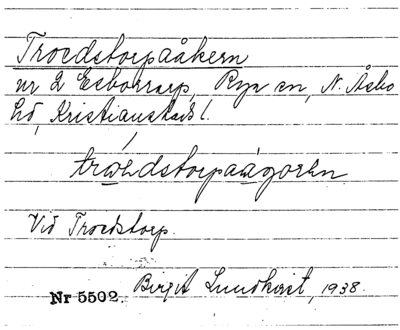 Troedstorpaåkern
nr 2 Esborrarp, Rya sn, N. Åsbo
hd, Kristianstads l.
Vid Troedstorp.
Nr 5502. Birgit Lundkvist, 1938.